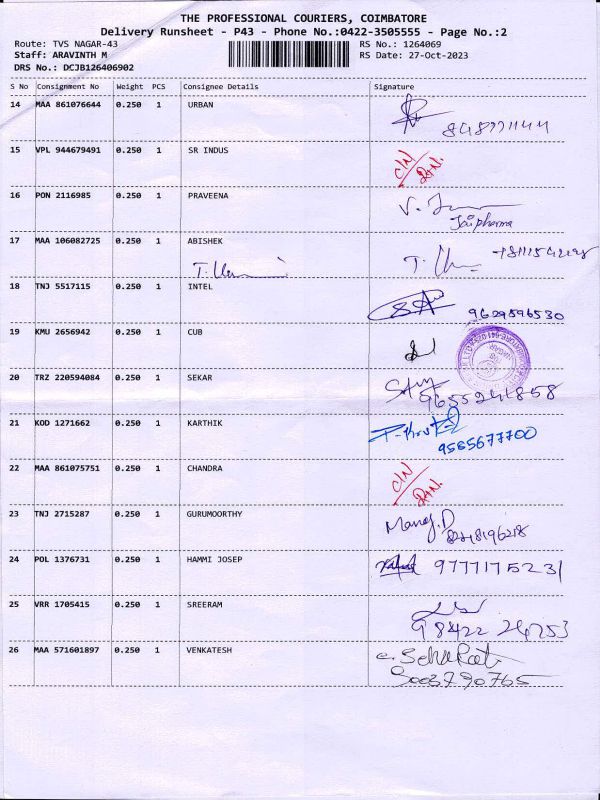 THE PROFESSIONAL COURIERS, COIMBATORE
Delivery Runsheet - P43 - Phone No.:0422-3505555 - Page No.:2
Route: TVS NAGAR-43 RS No.: 1264069
Staff: ARAVINTH M RS Date: 27-Oct-2023
DRS No.: DCJB126406902
S No Consignment No Weight PCS Consignee Details Signature
14 MAA 861076644 0.250 1 URBAN
15 VPL 944679491 0.250 1 SR INDUS
C/N
16 PON 2116985 0.250 1 PRAVEENA
Jaipharma
17 MAA 106082725 0.250 1 ABISHEK
18 TNJ 5517115 0.250 1 INTEL
9629596530
19 KMU 2656942 0.250 1 CUB
20 TRZ 220594084 0.250 1 SEKAR
9655241858
21 KOD 1271662 0.250 1 KARTHIK
9565677700
22 MAA 861075751 0.250 1 CHANDRA
C/N
23 TNJ 2715287 0.250 1 GURUMOORTHY
Manoj.D
8248196218
24 POL 1376731 0.250 1 HAMMI JOSEP
9777175231
25 VRR 1705415 0.250 1 SREERAM
98422 24253
26 MAA 571601897 0.250 1 VENKATESH
9003790765